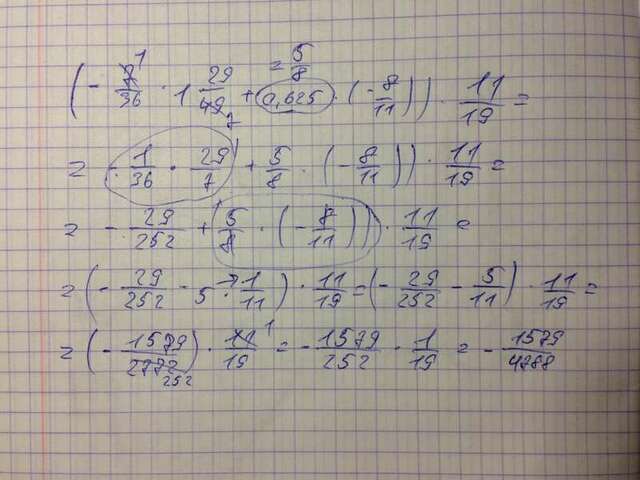 (- 7/36 · 1 29/49 + 0,625 · (- 8/11)) · 11/19 =
= - 1/36 · 29/7 + 5/8 · (- 8/11)) · 11/19 =
= - 29/252 + 5/8 · (- 8/11))) · 11/19 =
= (- 29/252 - 5 · 1/11) · 11/19 = (- 29/252 - 5/11) · 11/19 =
= (- 1579/2772) · 11/19 = - 1579/252 · 1/19 = - 1579/4788